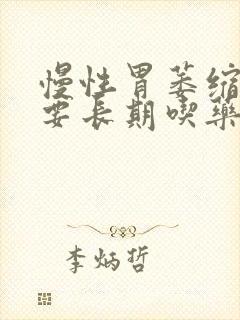 慢性胃萎缩
要长期喫药
李炳哲